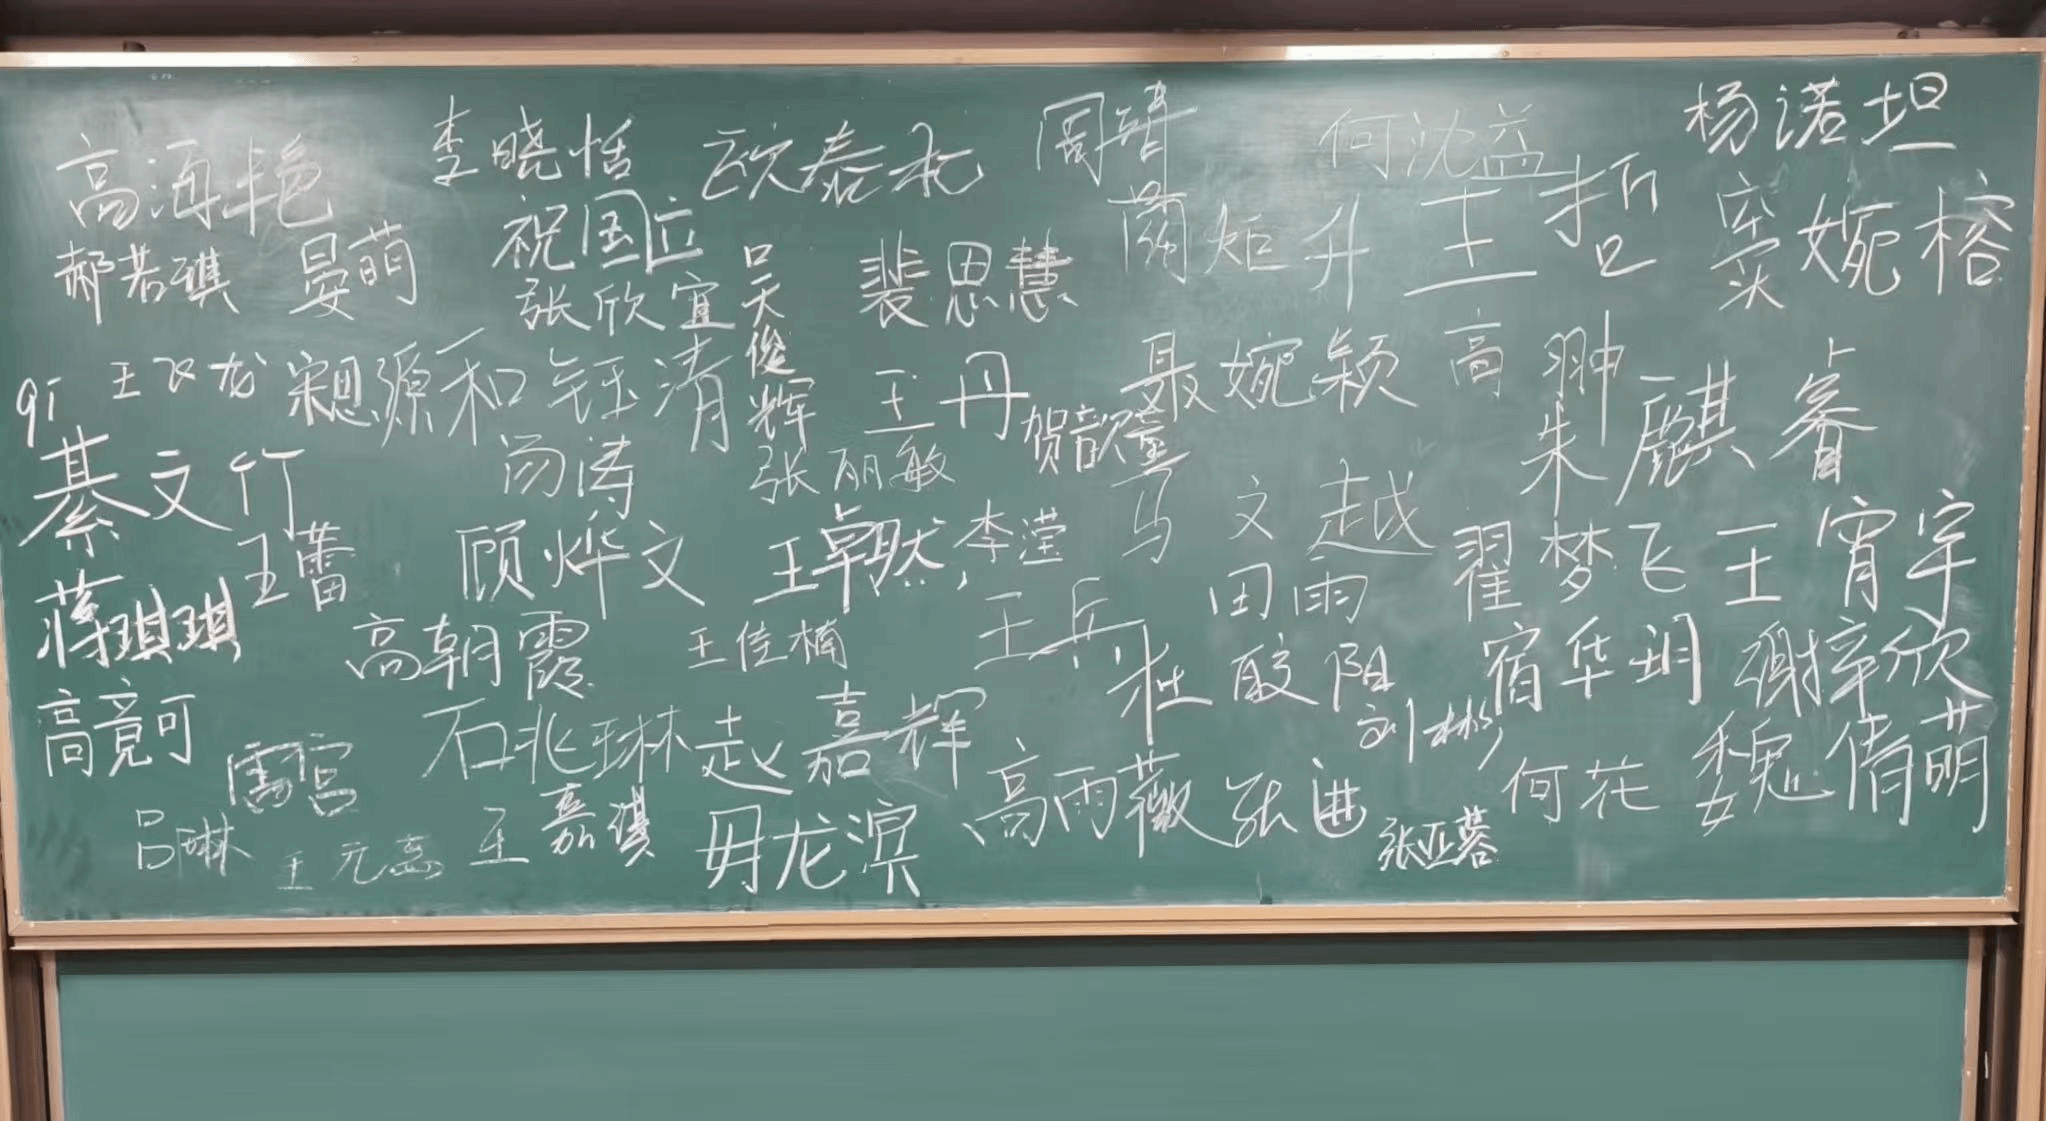 高海艳
李晓恬
欧泰礼
何沈益
杨诺坦
郝若琪
晏萌
祝国立
张欣宜
吴俊辉
裴思慧
蔺炬升
王哲
窦婉榕
王飞龙
宋思源
和钰清
王丹
贺歆童
聂婉颖
高翀
朱麒睿
綦文竹
汤涛
张丽敏
马文越
王蕾
顾烨文
王卓然
李滢
田雨
翟梦飞
王宵宇
蒋琪琪
高朝霞
王佳楠
王兵
杜殿阳
宿华玥
谢梓欣
高竟可
雷宫
石兆琳
赵嘉辉
刘彬
何花
魏倩萌
吕琳
王元蕊
王嘉淇
毋龙滨
高雨薇
张进
张亚蓉